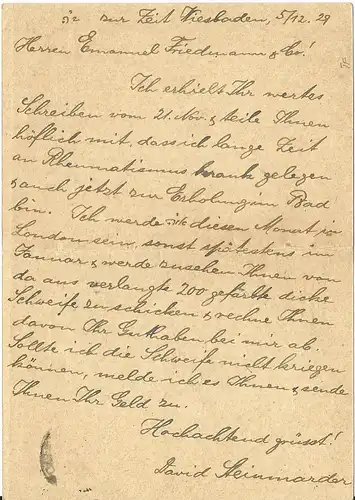 zur Zeit Wiesbaden, 5/12.29
Herren Emanuel Friedmann & Co!
Ich erhielt Ihr wertes
Schreiben vom 21. Nov. & teile Ihnen
höflich mit, dass ich lange Zeit
an Rheumatismus krank gelegen
& auch jetzt zur Erholung im Bad
bin. Ich werde diesen Monat in
London sein, sonst spätestens im
Januar & werde zusehen Ihnen von
da aus verlangte 200 gefärbte dicke
Schweife zu schicken & rechne Ihnen
davon Ihr Guthaben bei mir ab.
Sollte ich die Schweife nicht kriegen
können, melde ich es Ihnen & sende
Ihnen Ihr Geld zu.
Hochachtend grüsst!
David Steinmarder